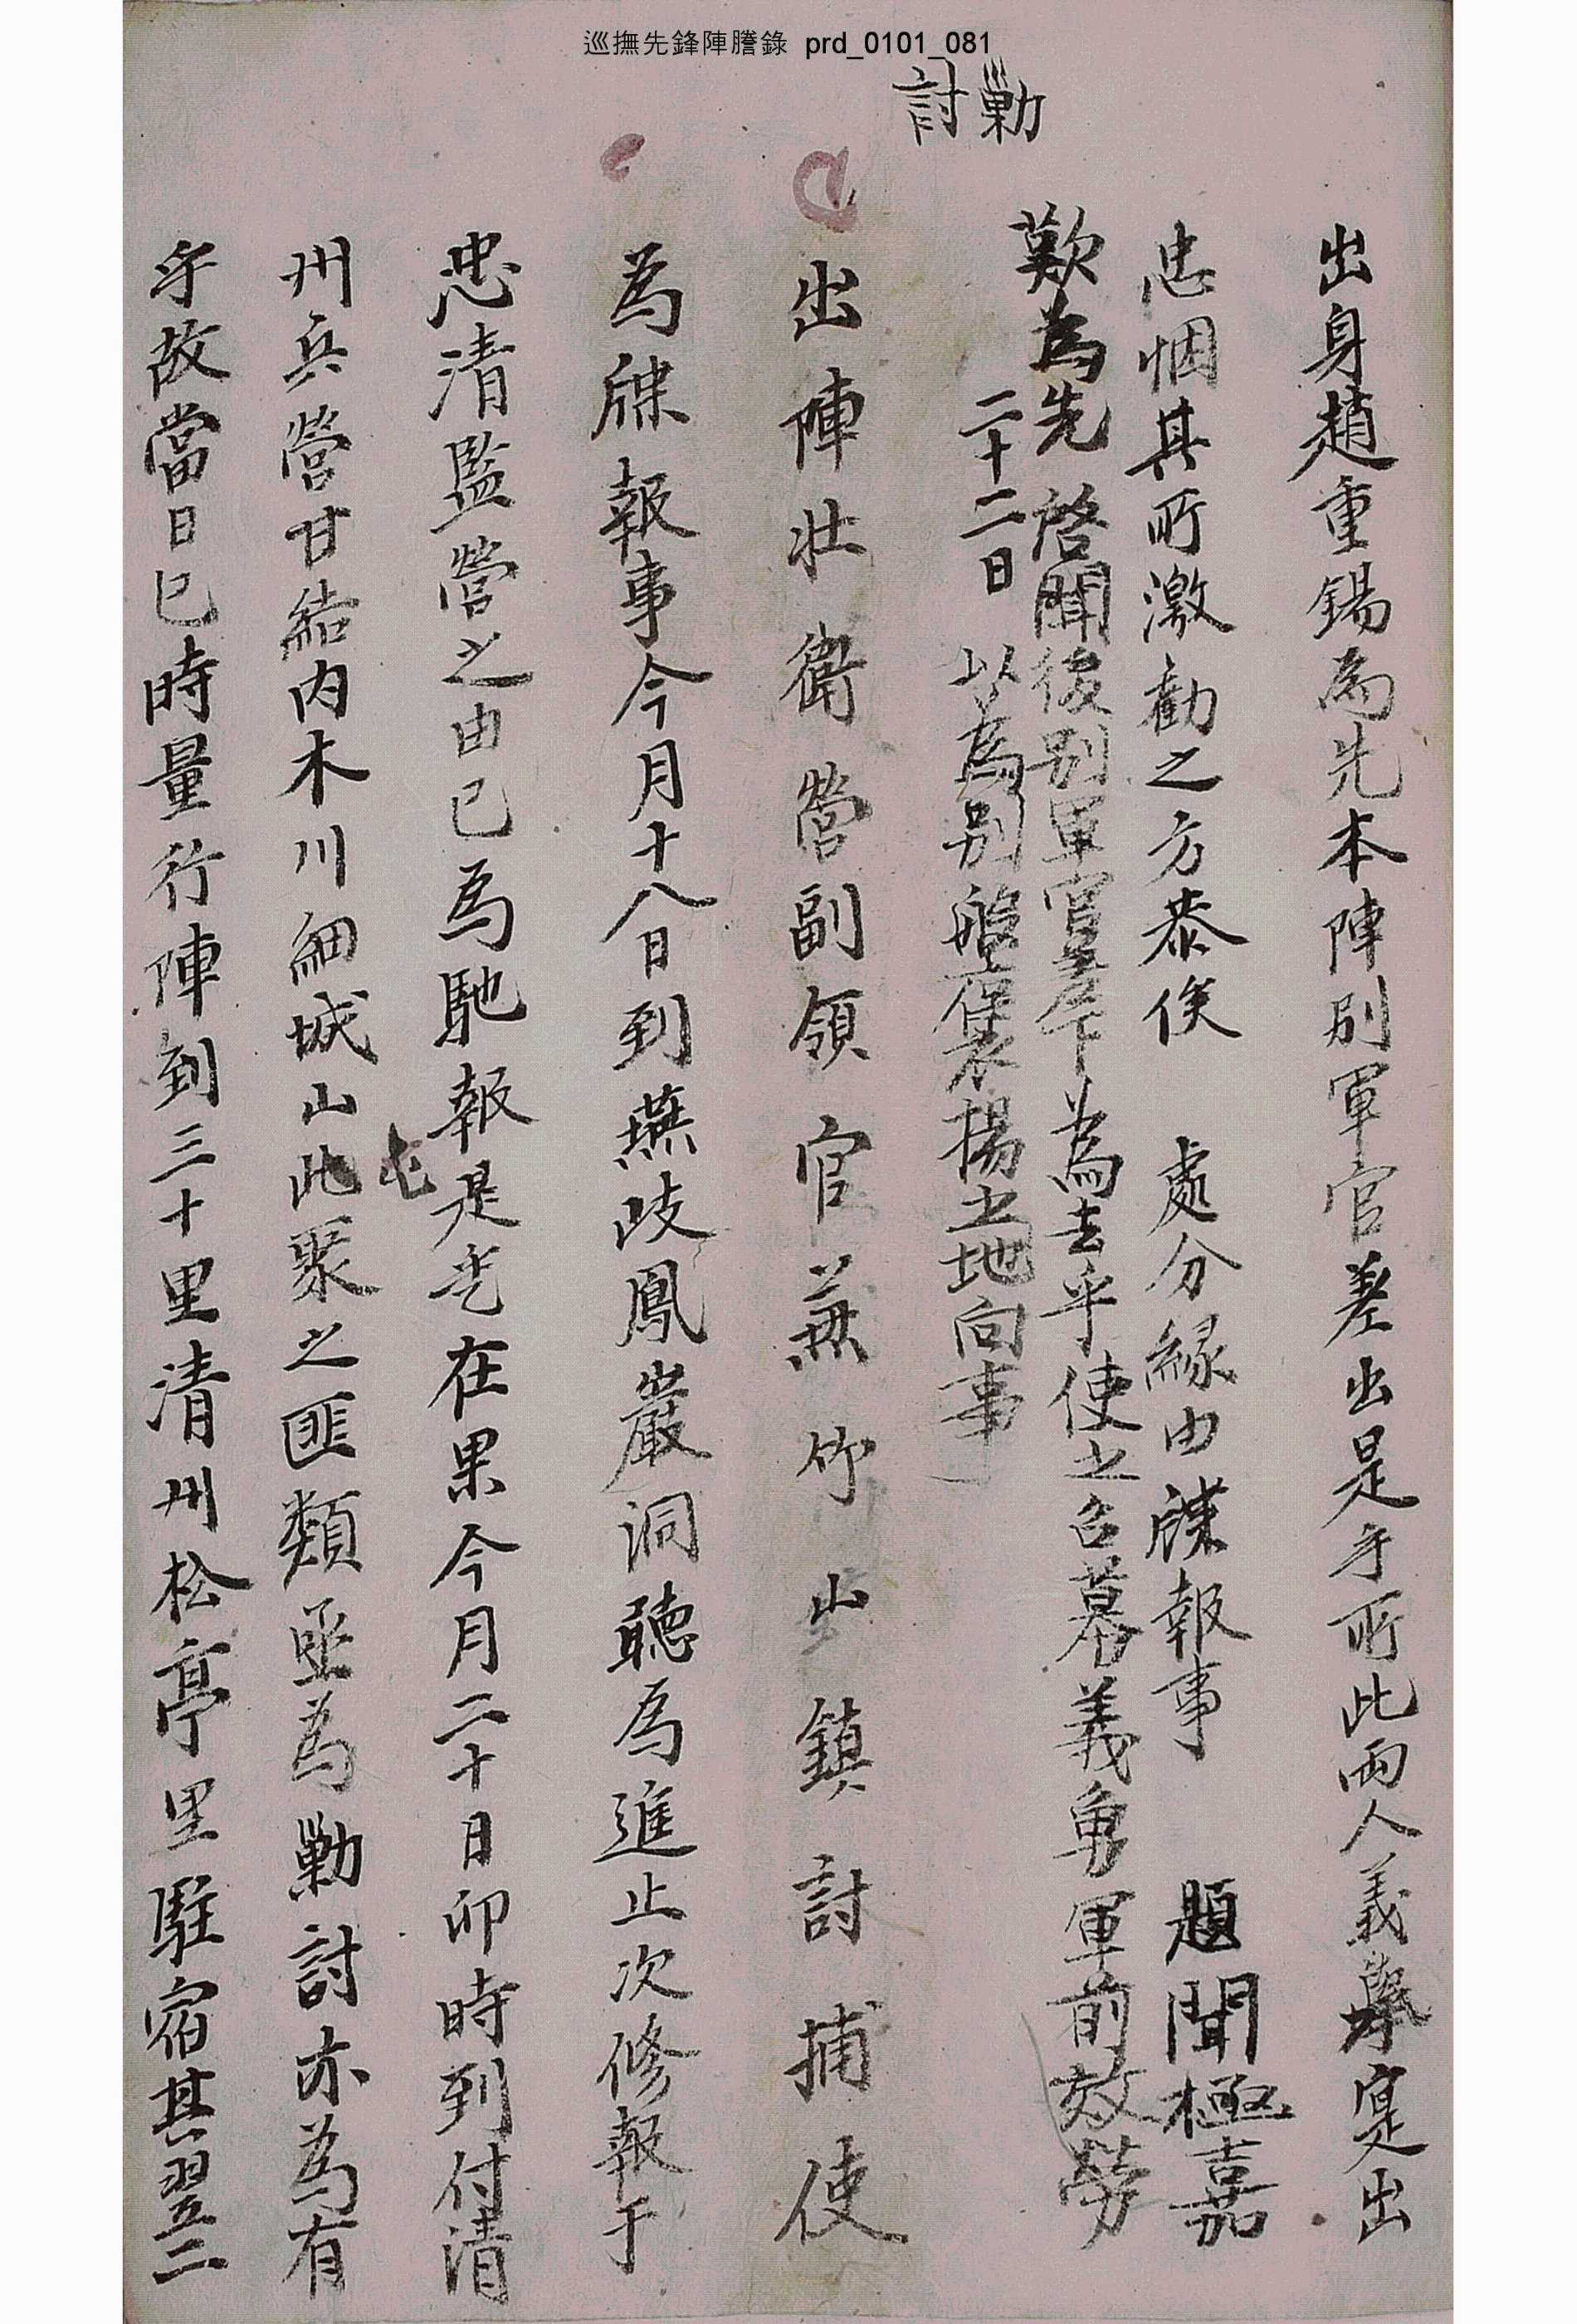 巡撫先鋒陣謄錄 prd_0101_081
勦討
出身趙重錫爲先本陣別軍官差出是乎所此兩人義擧寔出
忠悃其所激勸之方恭俟 處分緣由牒報事 題聞極嘉
歎爲先 啓聞後別軍官差下爲去乎使之召募義勇軍前效勞
二十二日 以爲別般褒揚之地向事
出陣壯衛營副領官兼竹山鎭討捕使
爲牒報事今月十八日到燕歧鳳巖洞聽爲進止次修報于
忠淸監營之由已爲馳報是乎在果今月二十日卯時到付淸
州兵營甘結內木川細城山屯聚之匪類亟爲勦討亦爲有
乎故當日巳時量行陣到三十里淸州松亭里駐宿其翌二